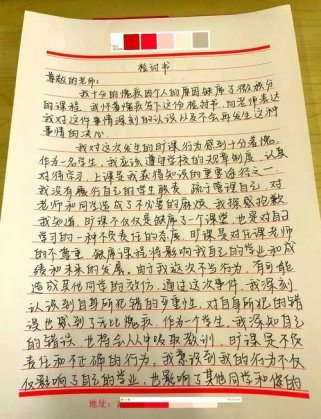 检讨书
尊敬的老师：
我十分的愧疚因个人的原因缺席了微积分
的课程，我怀着愧疚写下这份检讨书，向老师表达
我对这件事情深刻的认识以及不会再发生这种
事情的决心。
我对这次发生的旷课行为感到十分羞愧，
作为一名学生，我应该遵守学校的规章制度，认真
对待学习，上课是我获得知识的重要途径之一
我没有履行自己的学生职责，疏于管理自己，对
老师和同学造成了不必要的麻烦，我深感抱歉
我知道，旷课不仅仅是缺席了一个课堂，也是对自己
学习的一种不负责任的态度，旷课是对任课老师
的不尊重，缺席课程将影响我自己的学业和成
绩和未来的发展，由于我这次不当行为，有可能
造成其他同学的效仿，通过这次事件，我深刻
认识到自身所犯错的严重性，对自身所犯的错
误也感到了无比愧疚，作为一个学生，我深知自己
的错误，也将会从中吸取教训，旷课是不负
责任和不正确的行为，我意识到我的行为不仅
仅影响了自己的学业，也影响了其他同学和您的
地址：